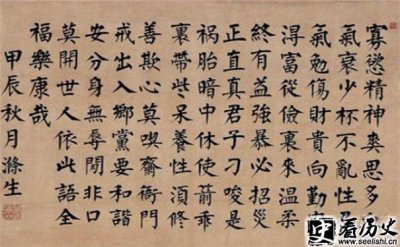 寡慾精神爽思多
氣衰少杯不亂性
氣勉傷財貴向勤
淂富從儉裏來温柔
終有益強暴必招災
正直真君子刁唆是
祸胎暗中休使箭乖
裏帶些呆養性須修
善欺心莫喫齋衙門
戒出入鄉黨要和諧
安分身無辱閒非口
莫開世人依此語全
福樂康哉
甲辰秋月滌生
看历史
www.seelishi.cn